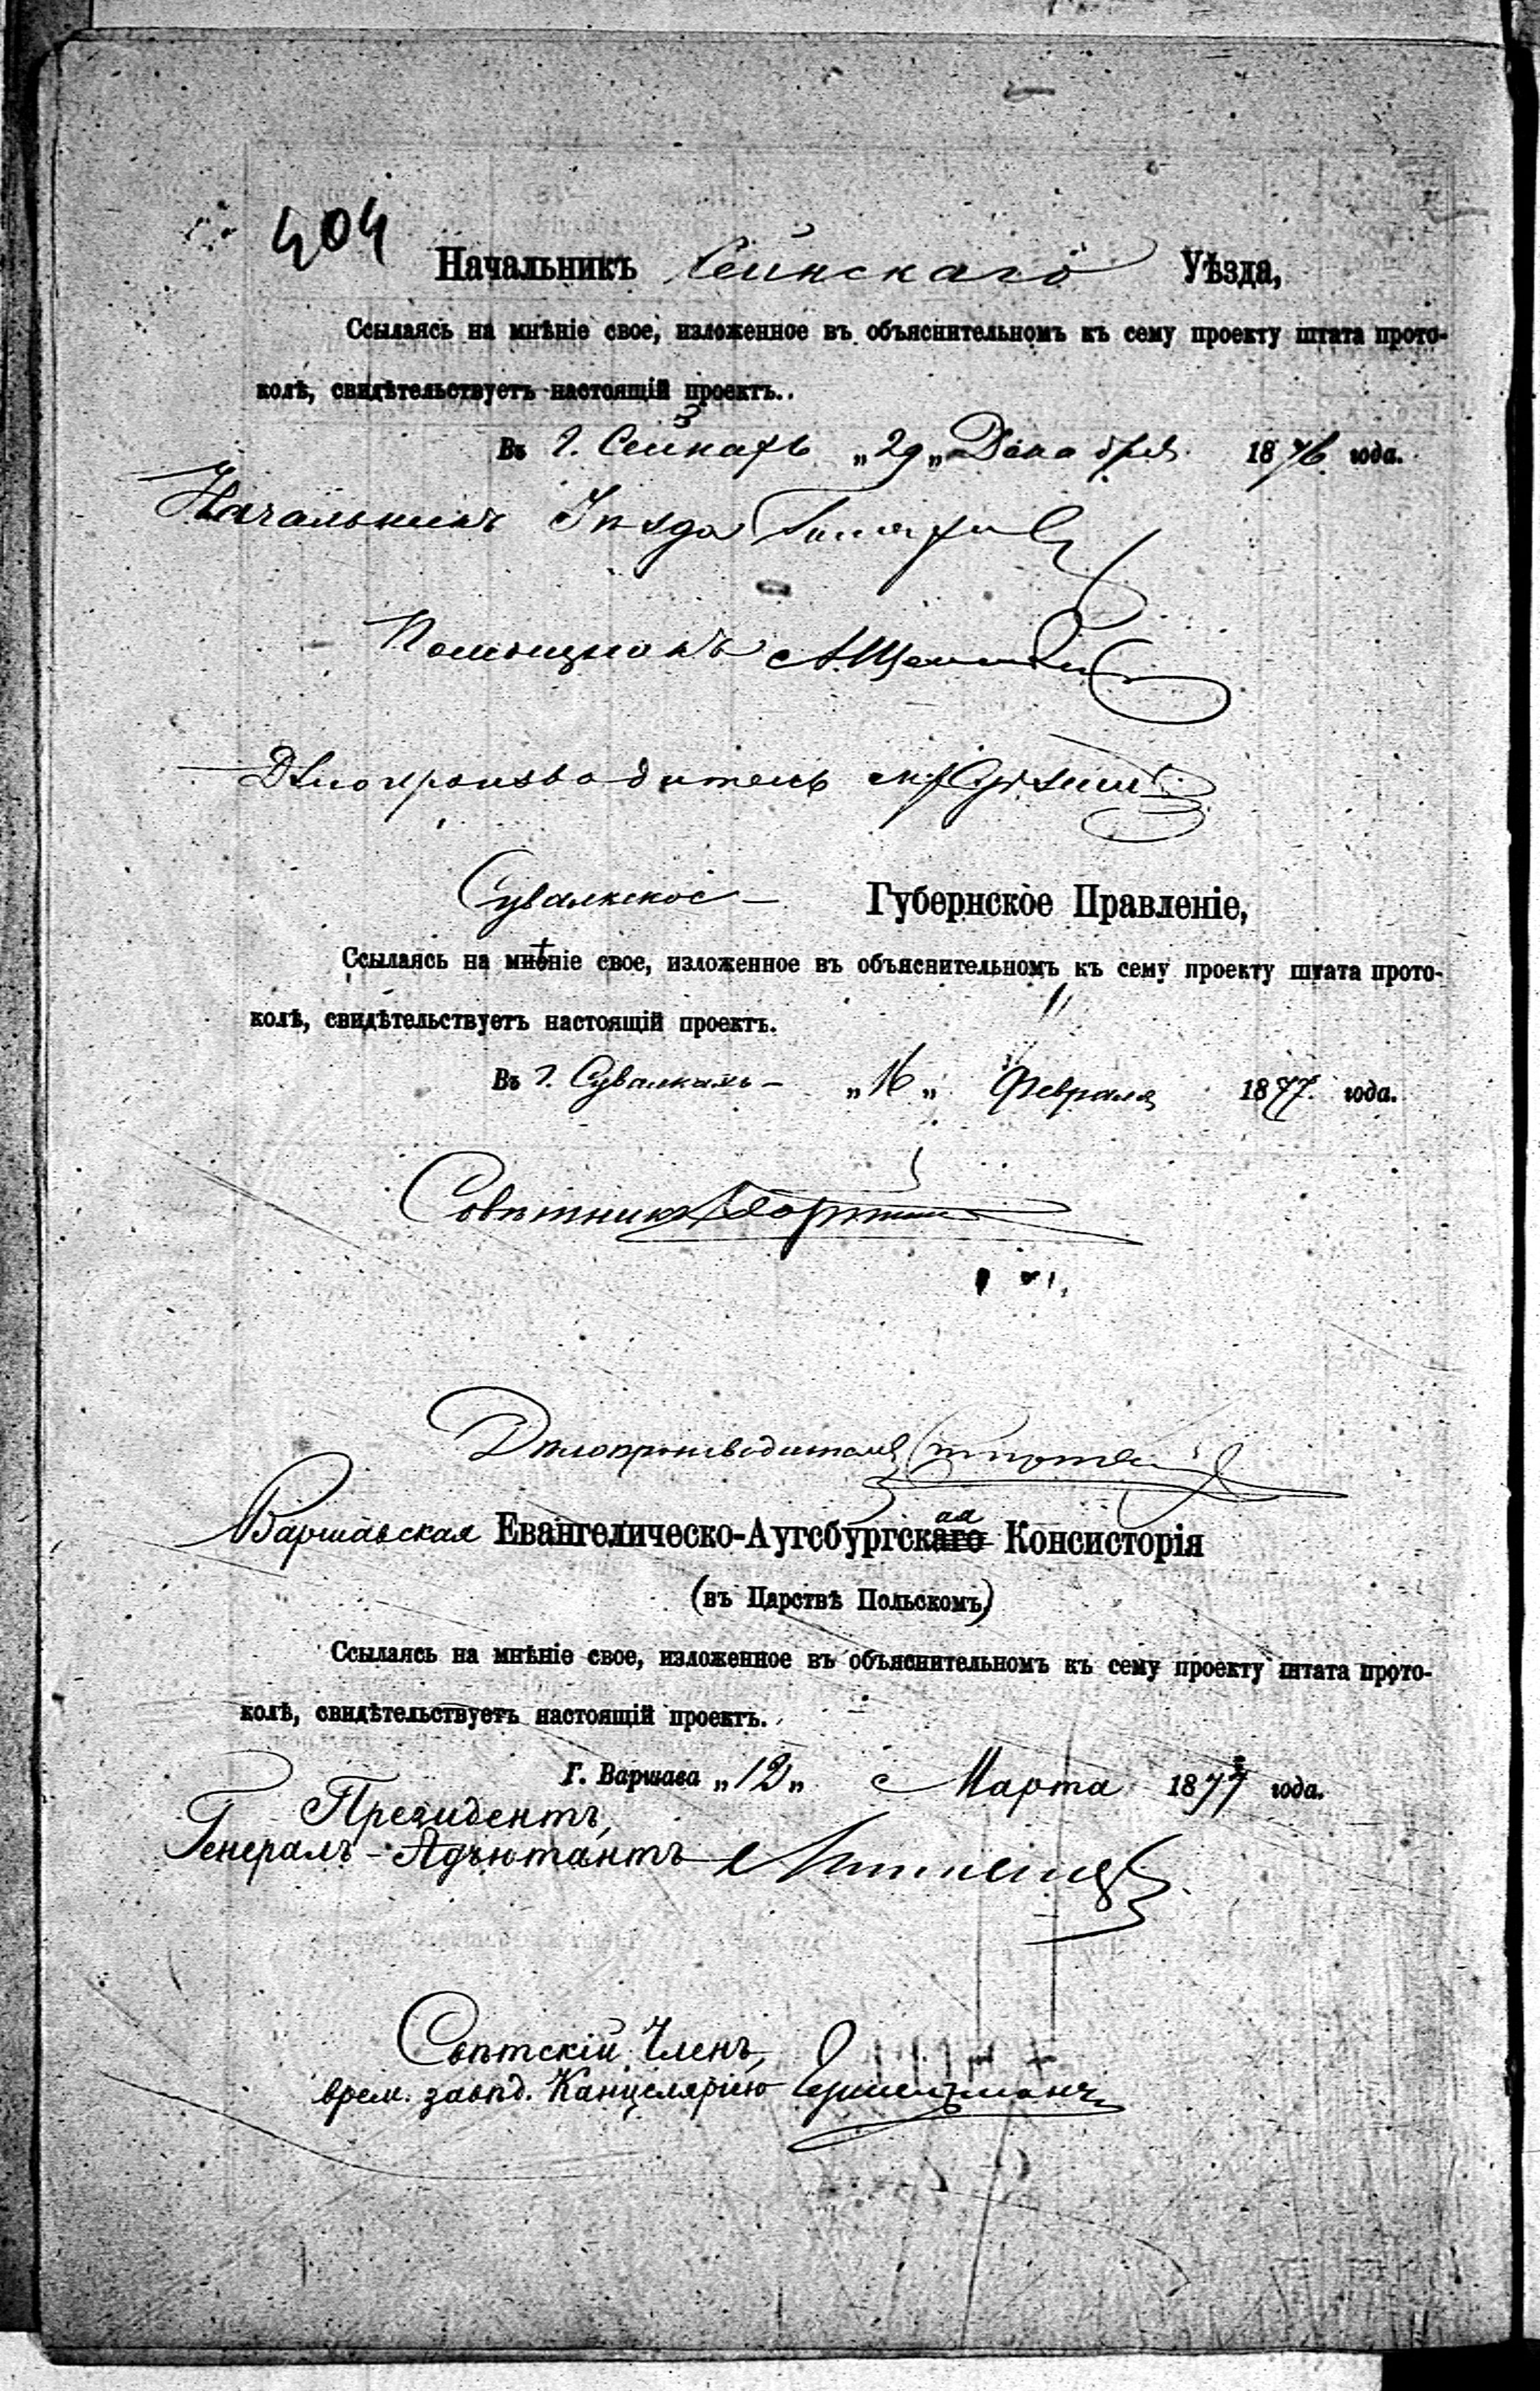 404
Начальникъ Сейнскаго Уѣзда,
Ссылаясь на мнѣніе свое, изложенное въ объяснительномъ къ сему проекту штата прото-
колѣ, свидѣтельствуетъ настоящій проектъ.
Въ г. Сейнахъ „29„ Декабря 1876 года.
Начальникъ Уѣзда
Помощникъ
Дѣлопроизводитель
Сувалкское Губернское Правленіе,
Ссылаясь на мнѣніе свое, изложенное въ объяснительномъ къ сему проекту штата прото-
колѣ, свидѣтельствуетъ настоящій проектъ.
Въ г. Сувалкахъ „16„ Февраля 1877 года.
Совѣтникъ
Дѣлопроизводитель
Варшавская Евангелическо-Аугсбургская Консисторія
(въ Царствѣ Польскомъ)
Ссылаясь на мнѣніе свое, изложенное въ объяснительномъ къ сему проекту штата прото-
колѣ, свидѣтельствуетъ настоящій проектъ.
Г. Варшава „12„ Марта 1877 года.
Президентъ,
Генералъ-Адъютантъ
Свѣтскій Членъ,
врем. завѣд. Канцеляріею